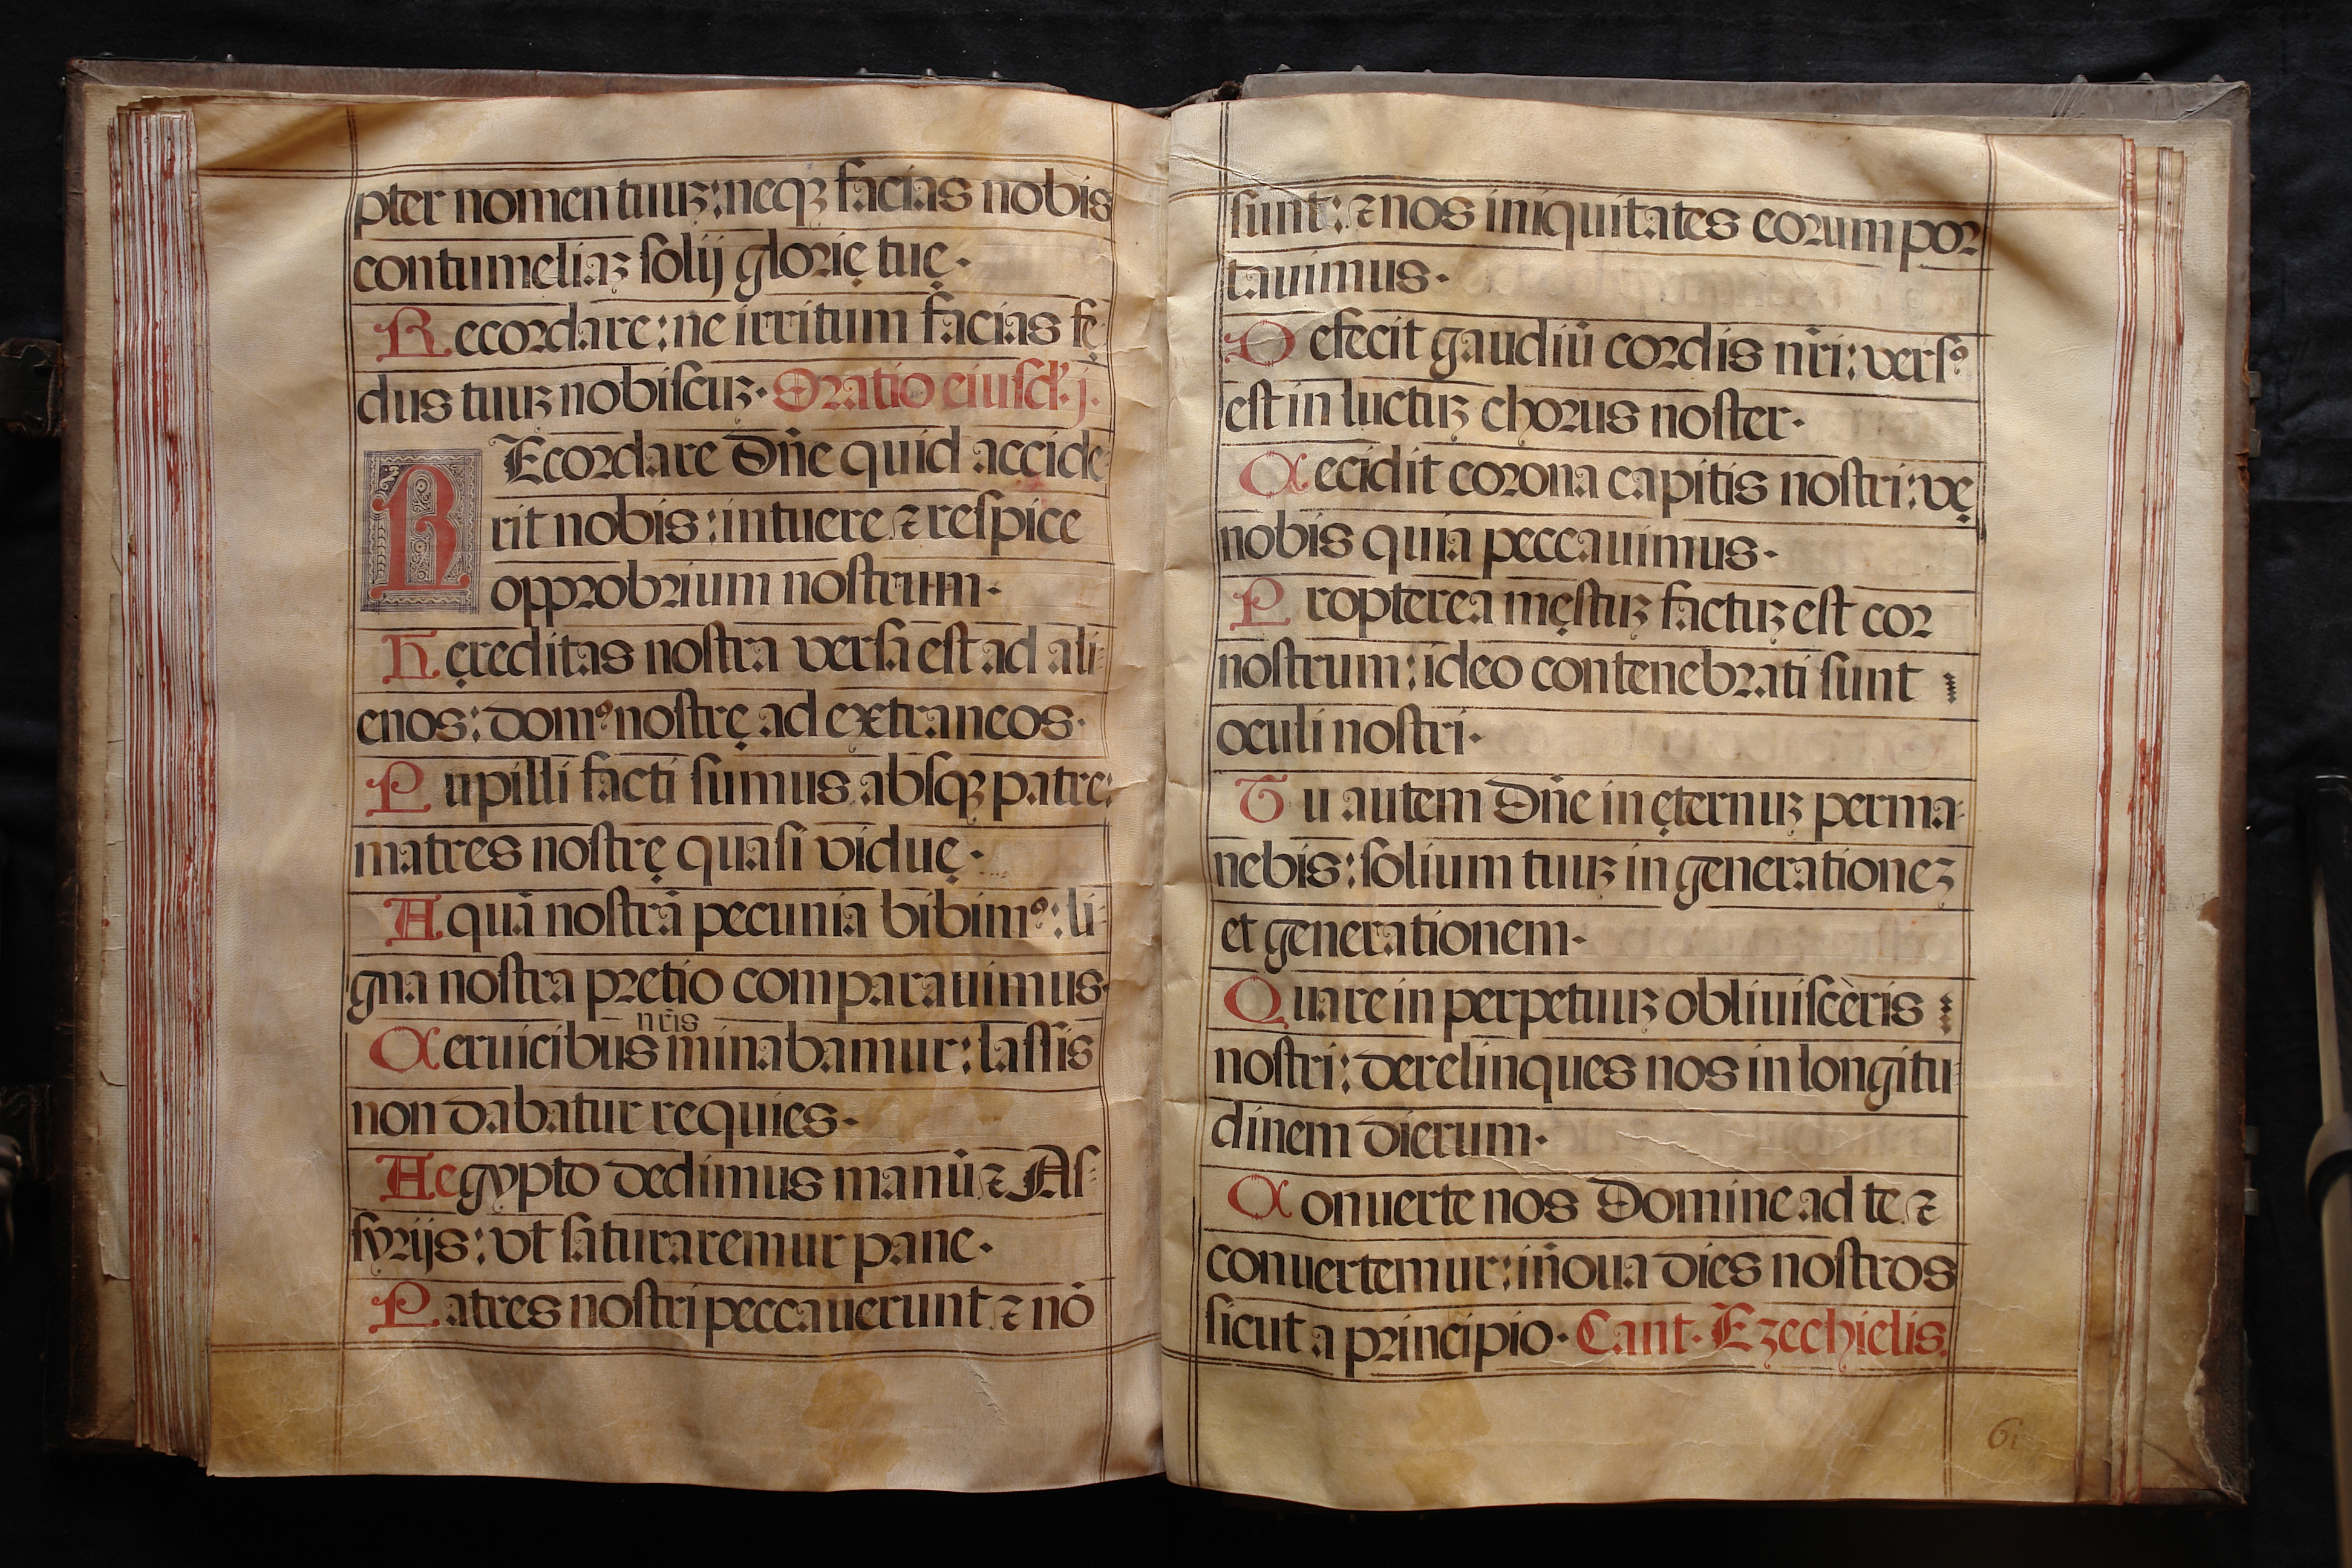 pter nomen tuuꝫ: neqꝫ facias nobis
contumeliaꝫ ſolij glorię tuę.
Recordare: ne irritum facias fę
dus tuuꝫ nobiſcuꝫ. Oratio eiuſd. j.
REcordare Dn̄e quid accide-
rit nobis: intuere ⁊ reſpice
opprobrium noſtrum.
Hęreditas noſtra verſa eſt ad ali-
enos: domꝰ noſtrę ad extraneos.
Pupilli facti ſumus abſqꝫ patre:
matres noſtrę quaſi viduę.
Aquā noſtrā pecunia bibimꝰ: li-
gna noſtra pretio comparauimus.
nr̄is
Ceruicibus minabamur: laſſis
non dabatur requies.
Aegypto dedimus manū ⁊ Aſ-
ſyrijs: vt ſaturaremur pane.
Patres noſtri peccauerunt ⁊ nō
ſunt: ⁊ nos iniquitates eorum por
tauimus.
Defecit gaudiū cordis nr̄i: verſꝰ
eſt in luctuꝫ chorus noſter.
Cecidit corona capitis noſtri: vę
nobis quia peccauimus.
Propterea męſtuꝫ factuꝫ eſt cor
noſtrum: ideo contenebrati ſunt
oculi noſtri.
Tu autem Dn̄e in ęternuꝫ perma-
nebis: ſolium tuuꝫ in generationeꝫ
et generationem.
Quare in perpetuuꝫ obliuiſcèris
noſtri: derelinques nos in longitu-
dinem dierum.
Conuerte nos Domine ad te ⁊
conuertemur: iñoua dies noſtros
ſicut a principio. Cant. Ezechielis.
61